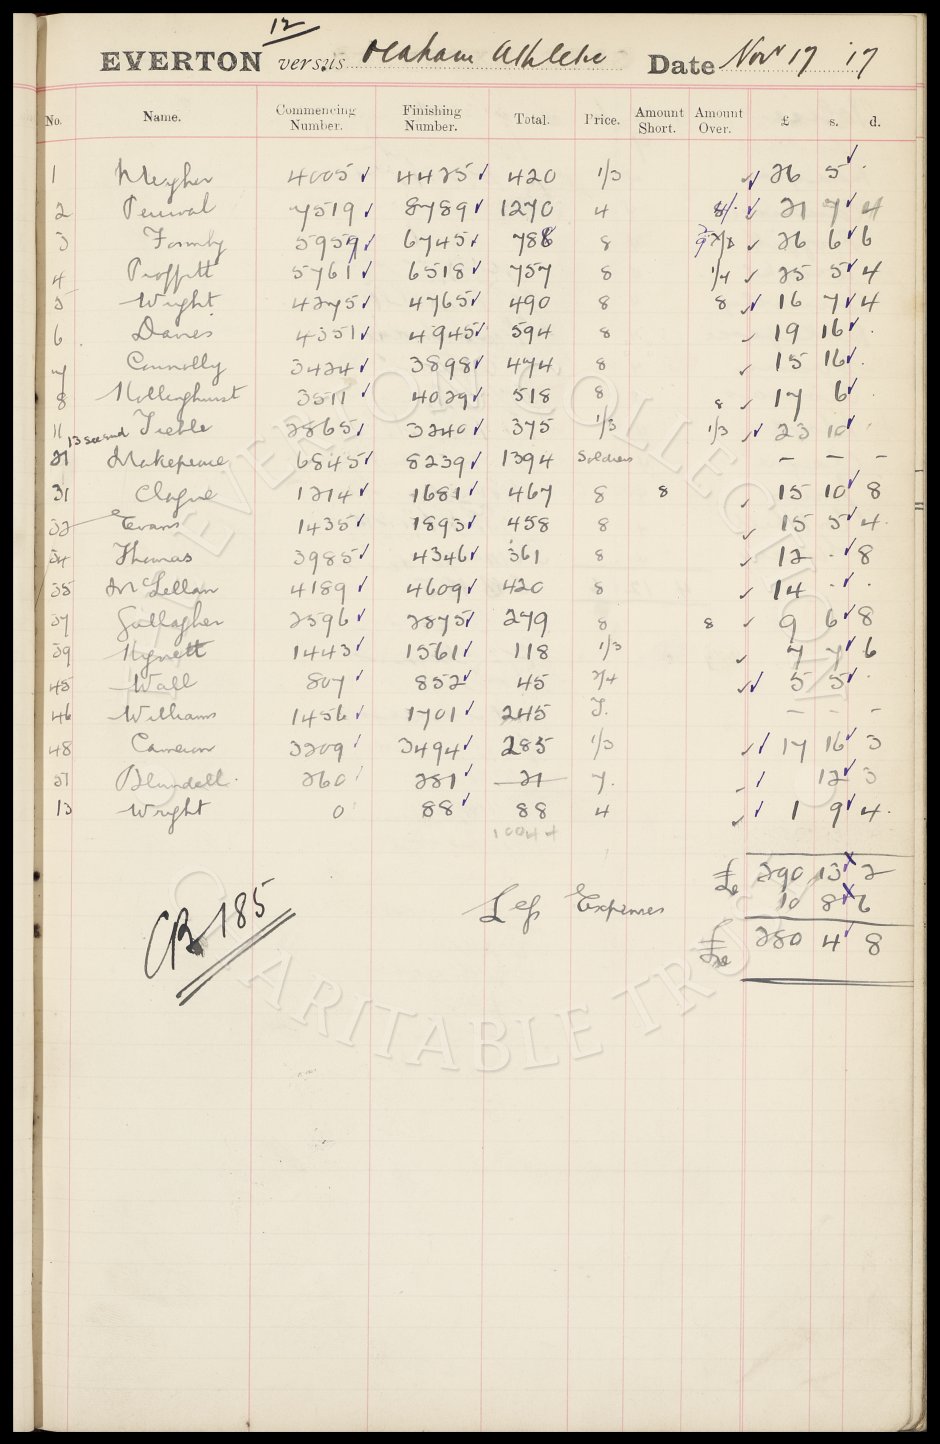 12
EVERTON versus Oldham Athletic Date Nov 17 '17
No. Name. Commencing Number. Finishing Number. Total. Price. Amount Short. Amount Over. £ s. d.
1 Meagher 4005 4425 420 1/3 26 5 .
2 Percival 7519 8789 1270 4 8/. 21 7 4
3 Formby 5959 6745 786 8 26 6 6
4 Proffitt 5761 6518 757 8 1/4 25 5 4
5 Wright 4275 4765 490 8 8 16 7 4
6 Davies 4351 4945 594 8 19 16 .
7 Connolly 3424 3898 474 8 15 16 .
8 Hollinghurst 3511 4029 518 8 8 17 6 .
11 13 second Treble 2865 3240 375 1/3 1/3 23 10 .
21 Makepeace 6845 8239 1394 Soldiers - - -
31 Clague 1214 1681 467 8 8 15 10 8
32 Evans 1435 1893 458 8 15 5 4
34 Thomas 3985 4346 361 8 12 . 8
35 McLellan 4189 4609 420 8 14 . .
37 Gallagher 2596 2875 279 8 8 9 6 8
39 1443 1561 118 1/3 7 7 6
45 Wall 807 852 45 2/4 5 5 .
46 Williams 1456 1701 245 T. - - -
48 Cameron 3209 3494 285 1/3 17 16 3
51 Blundell 260 281 21 7. 12 3
13 Wright 0 88 88 4 1 9 4
10044
£ 290 13 2
Less Expenses 10 8 6
£ 280 4 8
CB 185
EVERTON COLLECTION
CHARITABLE TRUST